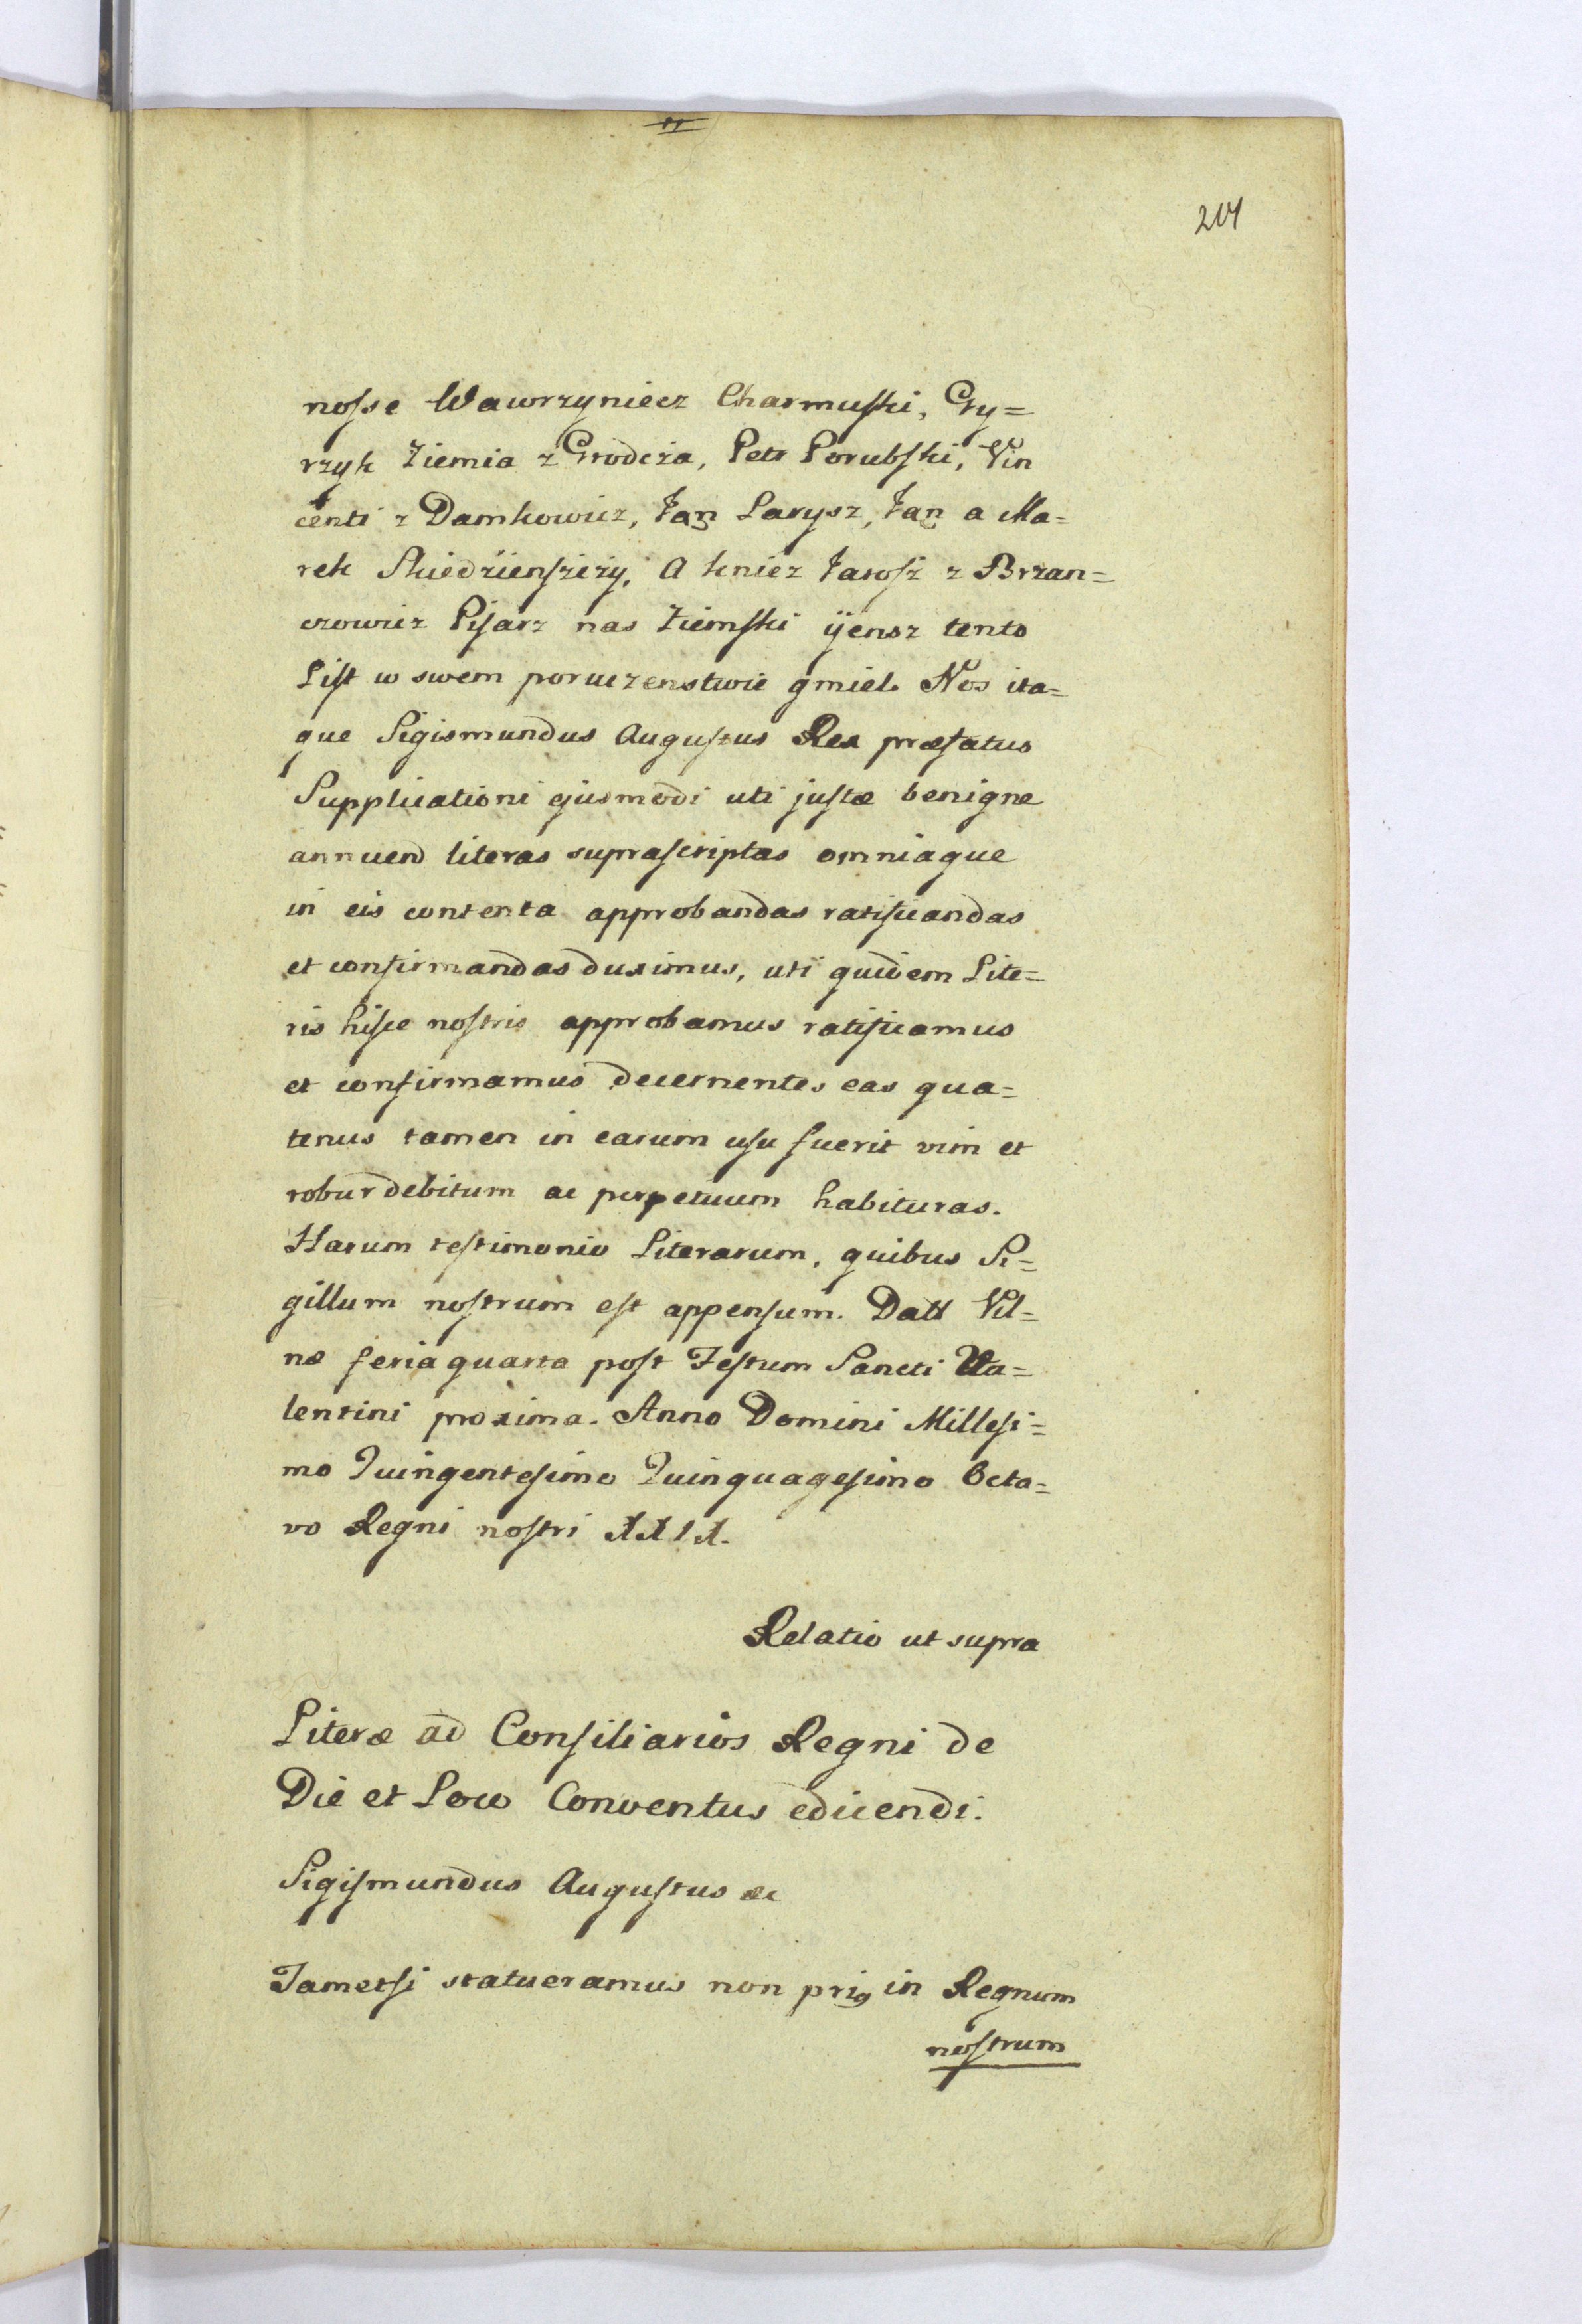 204
nosse Wawrzyniecz Charmuski, Gy=
rzyk Ziemia z Grodcża, Petr Porubski, Vin
centi z Damkowicz, Jan Larysz, Jan a Ma=
rek Skiedzienszczy, A kniez Jarosz z Brzan=
czowicz Pisarz nas Ziemski yensz tento
List w swem poruczenstwie gmiel. Nos ita=
que Sigismundus Augustus Rex præfatus
Supplicationi ejusmodi uti justæ benigne
annuend literas suprascriptas omniaque
in eis contenta approbandas ratificandas
et confirmandas duximus, uti quidem Lite=
ris hisce nostris approbamus ratificamus
et confirmamus decernentes eas qua=
tenus tamen in earum usu fuerit vim et
robur debitum ac perpetuum habituras.
Harum testimonio Literarum, quibus Si=
gillum nostrum est appensum. Datt Vil=
næ feria quarta post Festum Sancti Va=
lentini proxima. Anno Domini Millesi=
mo Quingentesimo Quinquagesimo Octa=
vo Regni nostri XXIX.
Relatio ut supra
Literæ ad Consiliarios Regni de
Die et Loco Conventus edicendi.
Sigismundus Augustus &c
Tametsi statueramus non prius in Regnum
nostrum